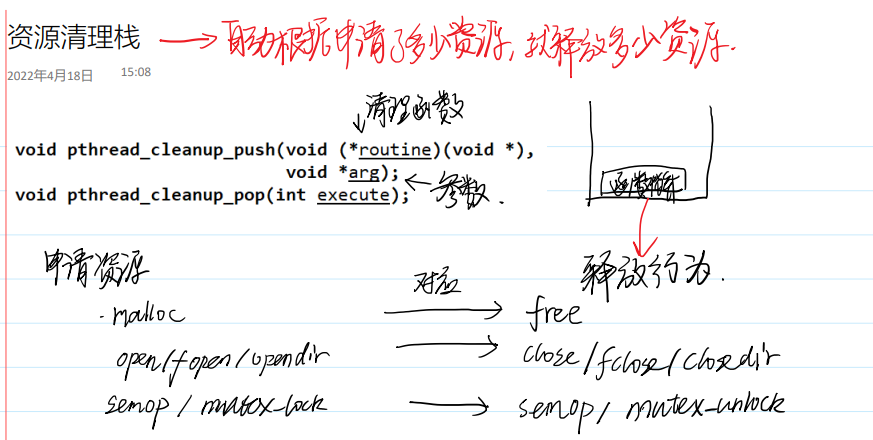 资源清理栈 → 自动根据申请了多少资源,就释放多少资源.
2022年4月18日 15:08
清理函数
void pthread_cleanup_push(void (*routine)(void *),
void *arg); ← 参数.
void pthread_cleanup_pop(int execute);
函数指针
申请资源 对应 释放行为.
· malloc → free
open/fopen/opendir → close/fclose/closedir
semop / mutex_lock → semop / mutex_unlock